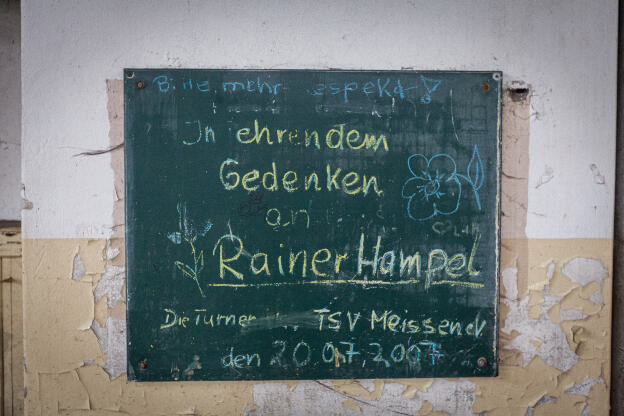 Bitte mehr Respekt!
In ehrendem
Gedenken
an
Rainer Hampel
Die Turner TSV Meissen
den 20.07.2007